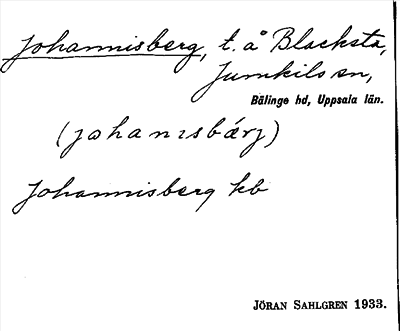 Johannisberg, t. å Blacksta,
Jumkils sn,
Bälinge hd, Uppsala län.
(johanısbárj)
Johannisberg kb
JÖRAN SAHLGREN 1933.